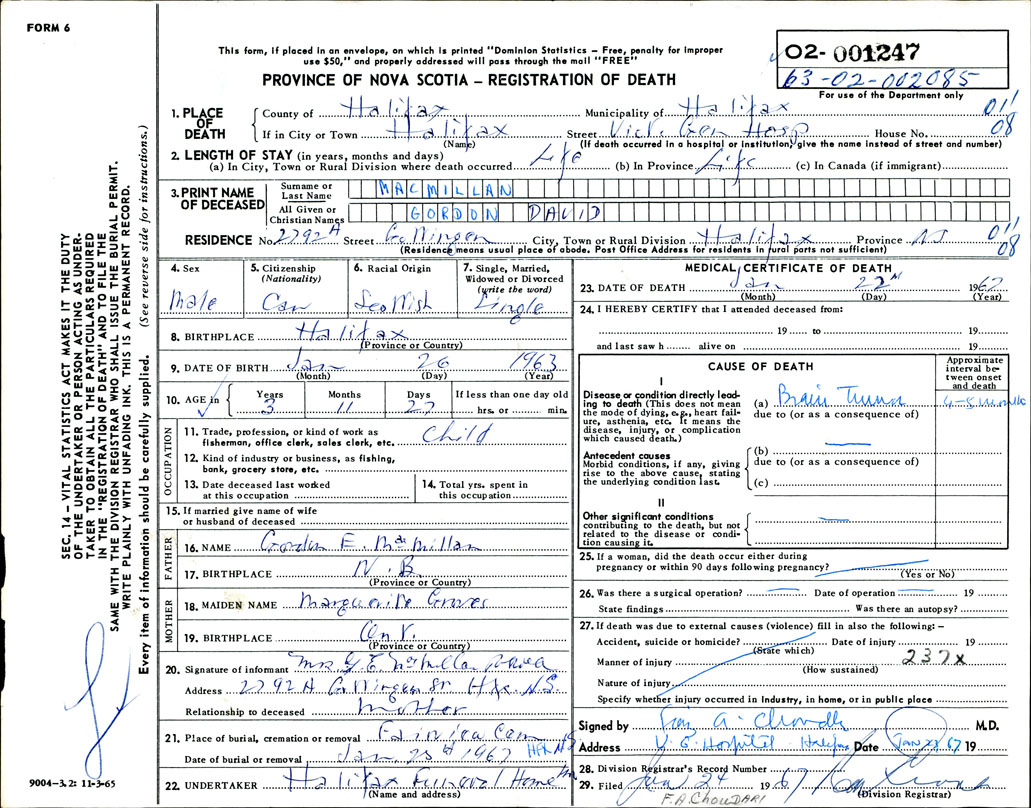 FORM 6
This form, if placed in an envelope, on which is printed "Dominion Statistics – Free, penalty for improper
use $50," and properly addressed will pass through the mail "FREE"
PROVINCE OF NOVA SCOTIA – REGISTRATION OF DEATH
02- 001247
63-02-002085
For use of the Department only
SEC. 14 – VITAL STATISTICS ACT MAKES IT THE DUTY
OF THE UNDERTAKER OR PERSON ACTING AS UNDER-
TAKER TO OBTAIN ALL THE PARTICULARS REQUIRED
IN THE "REGISTRATION OF DEATH" AND TO FILE THE
SAME WITH THE DIVISION REGISTRAR WHO SHALL ISSUE THE BURIAL PERMIT.
WRITE PLAINLY WITH UNFADING INK. THIS IS A PERMANENT RECORD.
Every item of information should be carefully supplied. (See reverse side for instructions.)
1. PLACE OF DEATH
County of Halifax Municipality of Halifax 011
If in City or Town Halifax Street Vict. Gen Hosp House No. 08
(Name) (If death occurred in a hospital or institution, give the name instead of street and number)
2. LENGTH OF STAY (in years, months and days)
(a) In City, Town or Rural Division where death occurred Life (b) In Province Life (c) In Canada (if immigrant)
3. PRINT NAME OF DECEASED
Surname or Last Name MACMILLAN
All Given or Christian Names GORDON DAVID
RESIDENCE No. 2792A Street Gottingen City, Town or Rural Division Halifax Province NS 011
(Residence means usual place of abode. Post Office Address for residents in rural parts not sufficient) 08
4. Sex Male
5. Citizenship (Nationality) Can
6. Racial Origin Scottish
7. Single, Married, Widowed or Divorced (write the word) Single
8. BIRTHPLACE Halifax
(Province or Country)
9. DATE OF BIRTH Jan 26 1963
(Month) (Day) (Year)
10. AGE in Years 3 Months 11 Days 27 If less than one day old hrs. or min.
OCCUPATION
11. Trade, profession, or kind of work as fisherman, office clerk, sales clerk, etc. Child
12. Kind of industry or business, as fishing, bank, grocery store, etc.
13. Date deceased last worked at this occupation
14. Total yrs. spent in this occupation
15. If married give name of wife or husband of deceased
FATHER
16. NAME Gordon E. MacMillan
17. BIRTHPLACE N.B
(Province or Country)
MOTHER
18. MAIDEN NAME Marguerite Graves
19. BIRTHPLACE Ont.
(Province or Country)
20. Signature of informant Mrs G.E. McMillan
Address 2792A Gottingen St Hfx. N.S.
Relationship to deceased Mother
21. Place of burial, cremation or removal Fairview Cem
Date of burial or removal Jan. 25th 1967 HFX NS
22. UNDERTAKER Halifax Funeral Home
(Name and address)
9004–3.2: 11-3-65
MEDICAL CERTIFICATE OF DEATH
23. DATE OF DEATH Jan 22nd 1967
(Month) (Day) (Year)
24. I HEREBY CERTIFY that I attended deceased from:
19 to 19
and last saw h alive on 19
CAUSE OF DEATH
Approximate interval between onset and death
I
Disease or condition directly leading to death (This does not mean the mode of dying, e.g., heart failure, asthenia, etc. It means the disease, injury, or complication which caused death.)
(a) Brain Tumor 4-5 months
due to (or as a consequence of)
Antecedent causes
Morbid conditions, if any, giving rise to the above cause, stating the underlying condition last.
(b)
due to (or as a consequence of)
(c)
II
Other significant conditions contributing to the death, but not related to the disease or condition causing it.
25. If a woman, did the death occur either during
pregnancy or within 90 days following pregnancy?
(Yes or No)
26. Was there a surgical operation? Date of operation 19
State findings Was there an autopsy?
27. If death was due to external causes (violence) fill in also the following: –
Accident, suicide or homicide? Date of injury 19
(State which)
Manner of injury 237x
(How sustained)
Nature of injury
Specify whether injury occurred in Industry, in home, or in public place
Signed by M.D.
Address V.G. Hospital Halifax Date Jan 23 67 19
28. Division Registrar's Record Number
29. Filed Jan 24 1967
(Division Registrar)
F.A. CHOUDARI